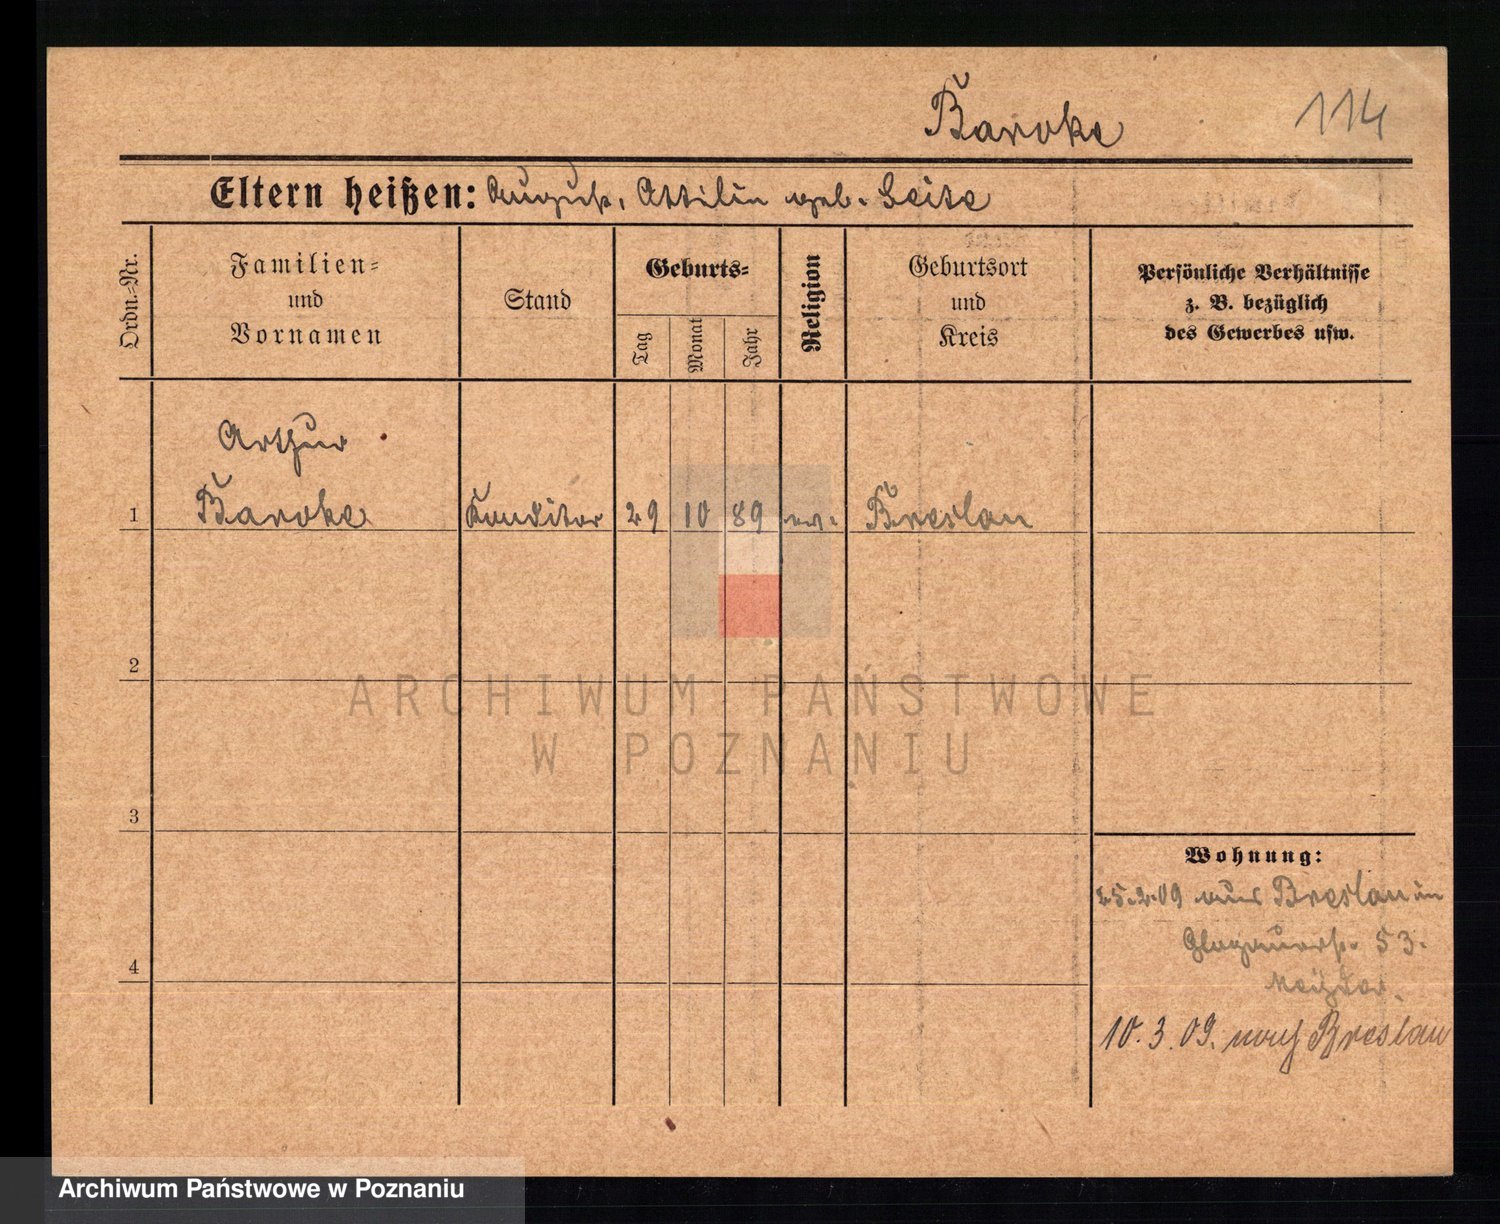 Baroke
114
Eltern heißen: August, Ottilie geb. Seite
Ordn.-Nr.
Familien-
und
Vornamen
Stand
Geburts-
Tag
Monat
Jahr
Religion
Geburtsort
und
Kreis
Persönliche Verhältnisse
z. B. bezüglich
des Gewerbes usw.
Arthur
1 Baroke Konditor 29 10 89 ev. Breslau
2
3
4
Wohnung:
25.2.09 aus Breslau in
Glogauerstr. 53.
10.3.09. nach Breslau
ARCHIWUM PAŃSTWOWE
W POZNANIU
Archiwum Państwowe w Poznaniu